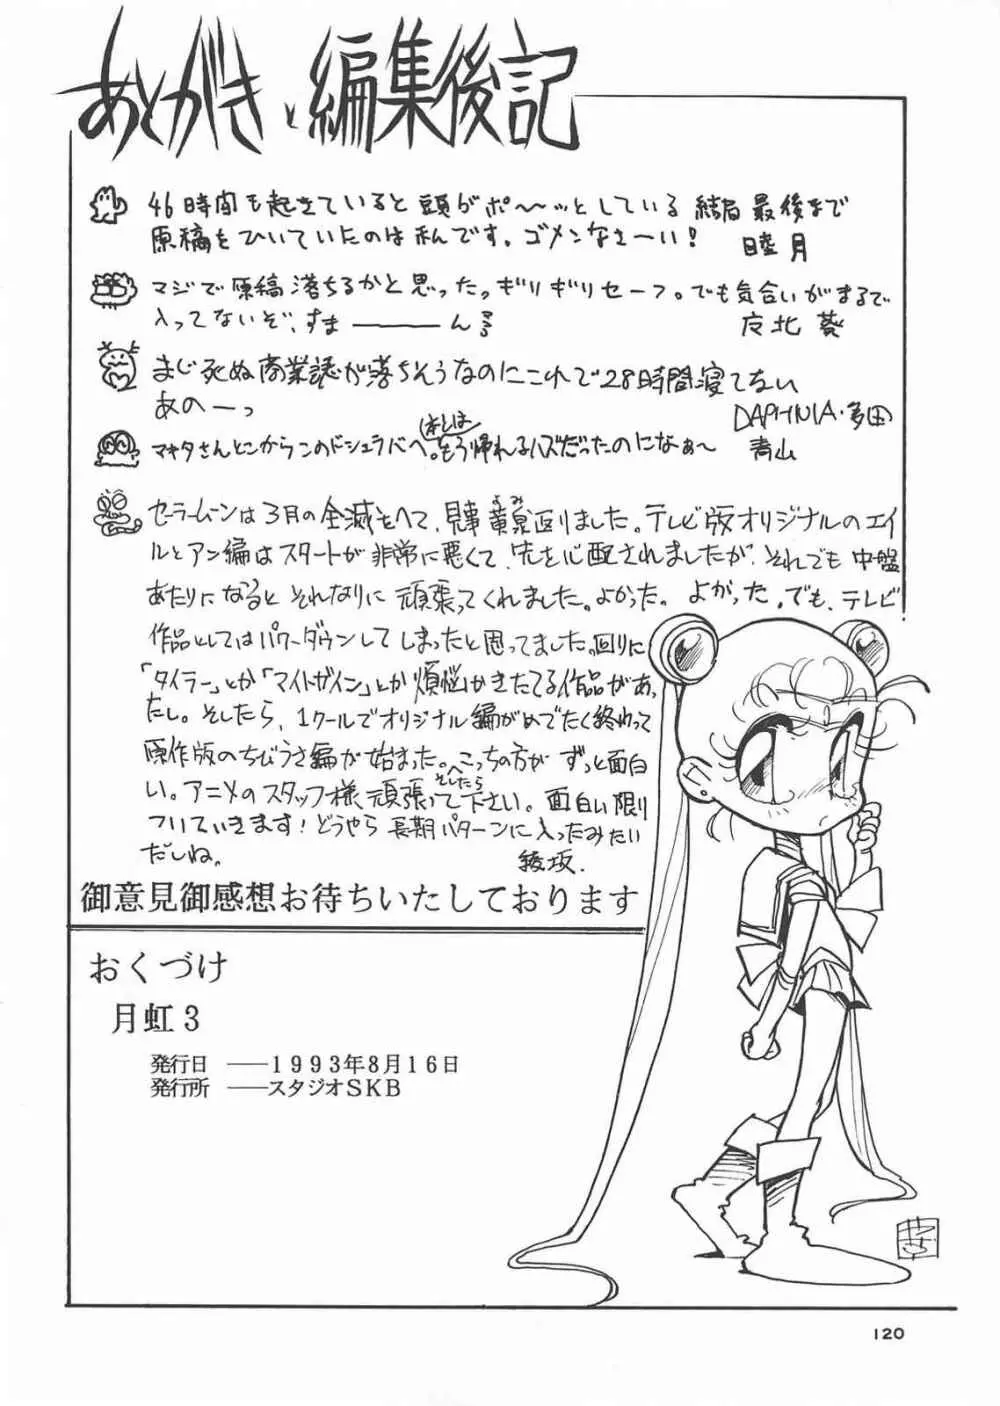 あとがきと編集後記
46時間も起きていると頭がポ〜〜ッとしている 結局最後まで
原稿をひいていたのは私です。ゴメンなさーい! 睦月
マジで原稿落ちるかと思ったっギリギリセーフ。でも気合いがまるで
入ってないぞ、すま――――ん
北 葵
まじ死ぬ商業誌が落ちそうなのにこれで28時間寝てない
あのーっ
DAPHNIA・多田
マキタさんとこからこのドシュラバへ。ほんとはもう帰れるハズだったのになぁ〜 青山
セーラームーンは3月の全滅をへて、見事黄泉返りました。テレビ版オリジナルのエイ
よみ
ルとアン編はスタートが非常に悪くて、先を心配されましたが、それでも中盤
あたりになるとそれなりに頑張ってくれました。よかった。よかった。でも、テレビ
作品としてはパワーダウンしてしまったと思ってました。回りに
「タイラー」とか「マイトガイン」とか煩悩かきたてる作品があっ
たし。そしたら、1クールでオリジナル編がめでたく終わって
原作版のちびうさ編が始まった。そしたらこっちの方がずっと面白
い。アニメのスタッフ様、頑張って下さい。面白い限り
ついていきます!どうやら長期パターンに入ったみたい
だしね。 綾坂.
御意見御感想お待ちいたしております
おくづけ
月虹3
発行日 ――1993年8月16日
発行所 ――スタジオSKB
120